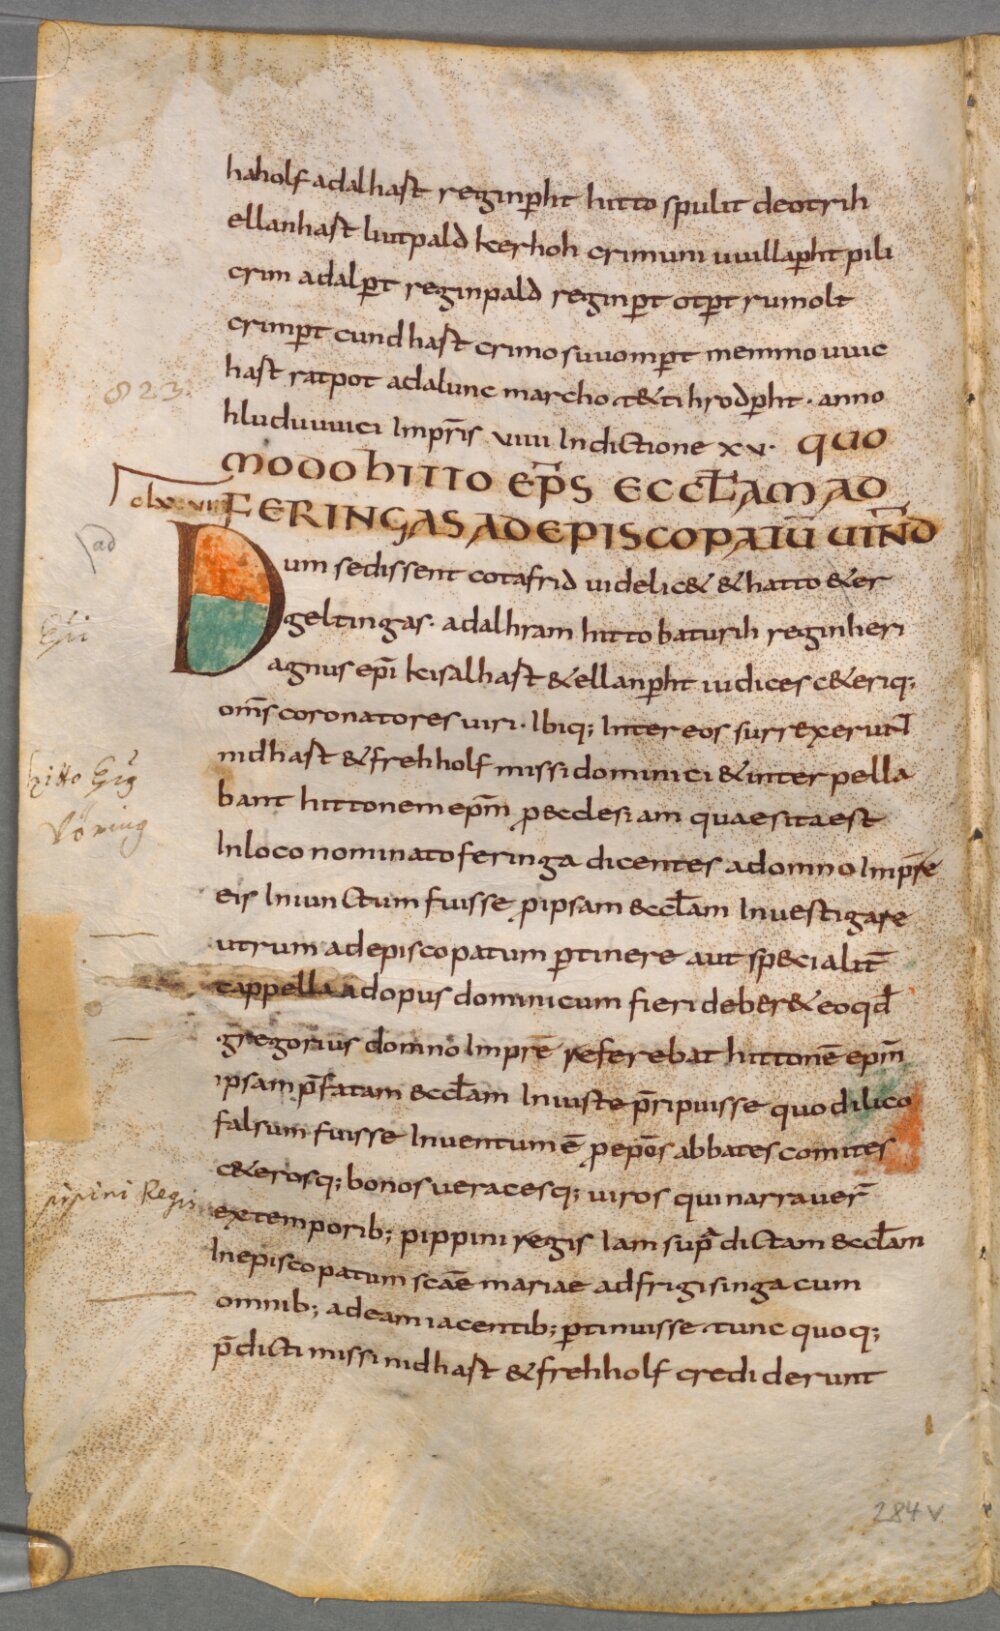 haholf adalhast reginp̱ht hitto spulit deotrih
ellanhast liutpald kerhoh crimuni uuillap̱ht pili
crim adalp̱t reginpald reginp̱t otp̱t rumolt
crimp̱t cundhast crimo suuomp̱t memmo uuic
823. hast ratpot adalunc marcho & ti hrodp̱ht · anno
hluduuuici Imprīs viiii Indictione xv · QUO
MODO HITTO EP̄S ECCL̄AM AD
FERINGAS AD EPISCOPATŪ UIN̄D
ad
Dum sedissent cotafrid uidelic& & hatto & er
geltingas · adalhram hitto baturih reginheri
agnus ep̄i kisalhast & ellanp̱ht iudices c&eriq;
om̄s coronatores uiri · Ibiq; Inter eos surrexerunt
nidhast & frehholf missi dominici & interpella
hitto
bant hittonem ep̄m p̱ ecclesiam quae sita est
Vöring
In loco nominato feringa dicentes a domno Imp̄re
eis Iniunctum fuisse p̱ ipsam &ccl̄am Inuestigare
utrum ad episcopatum p̱tinere aut sp&cialit̄
cappella ad opus dominicum fieri deber& eo qd̄
gregorius domno Imprē referebat hittonē ep̄m
ipsam p̄fatam &ccl̄am Iniuste p̄ripuisse quod ilico
falsum fuisse Inuentum ē p̱ ep̄os abbates comites
c&erosq; bonos ueracesq; uiros qui narrauer̄
pipini Regis
ex temporib; pippini regis Iam sup̄dictam &ccl̄am
In episcopatum scāe mariae ad frigisinga cum
omnib; ad eam iacentib; p̱tinuisse tunc quoq;
p̄dicti missi nidhast & frehholf crediderunt
284v